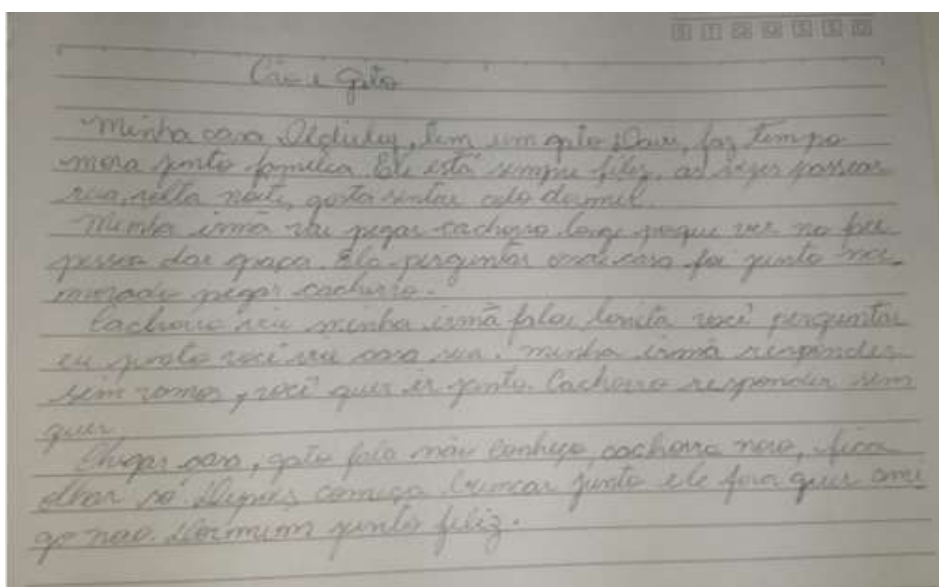 Cão e Gato
Minha casa, tem um gato Davi, faz tempo
mora junto familia. Ele está sempre feliz, as vezes passear
rua, volta noite, gosta sentar colo dormir.
Minha irmã vai pegar cachorro longe porque ver no
pessoa dar graça. Ela perguntar onde casa foi junto na-
morado pegar cachorro.
Cachorro viu minha irmã falar bonita você perguntar
eu junto você vai casa sua. minha irmã responder
sim vamos, você quer ir junto. Cachorro responder sim
quer.
Chegar casa, gato fala não conheço cachorro novo, fica
olhar só. Depois começa brincar junto ele fora quer ami
go não. Dormem junto feliz.